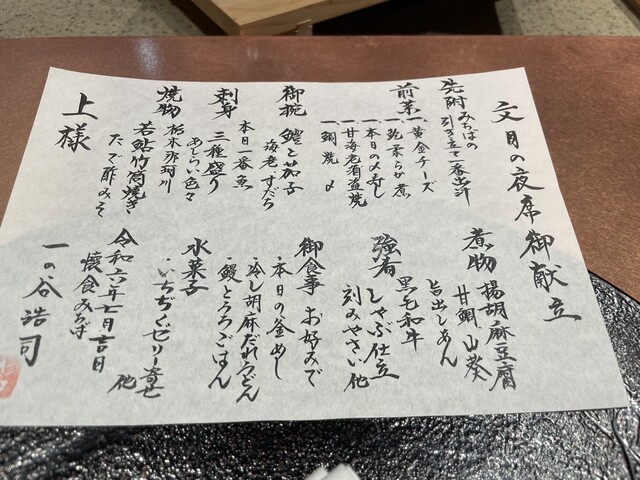 文月の夜席御献立
先附 みちはの
引き立て一番出汁
前菜 一 黄金チーズ
一 蛸柔らか煮
一 本日の〆寿し
一 甘海老有盗焼
一 鯛焼 〆
御椀 鱧と茄子
海老 すだち
刺身 本日一番魚
三種盛り
あしらい色々
焼物 栃木那珂川
若鮎竹筒焼き
たで酢みそ
上様
煮物 揚胡麻豆腐
甘鯛 山葵
旨出しあん
強肴 黒毛和牛
しゃぶ仕立
刻みやさい他
御食事 お好みで
・本日の釜めし
・冷し胡麻だれうどん
・鰻とろろごはん
水菓子
・いちぢくゼリー寄せ
他
令和六年七月吉日
懐食みちば
一の谷浩司